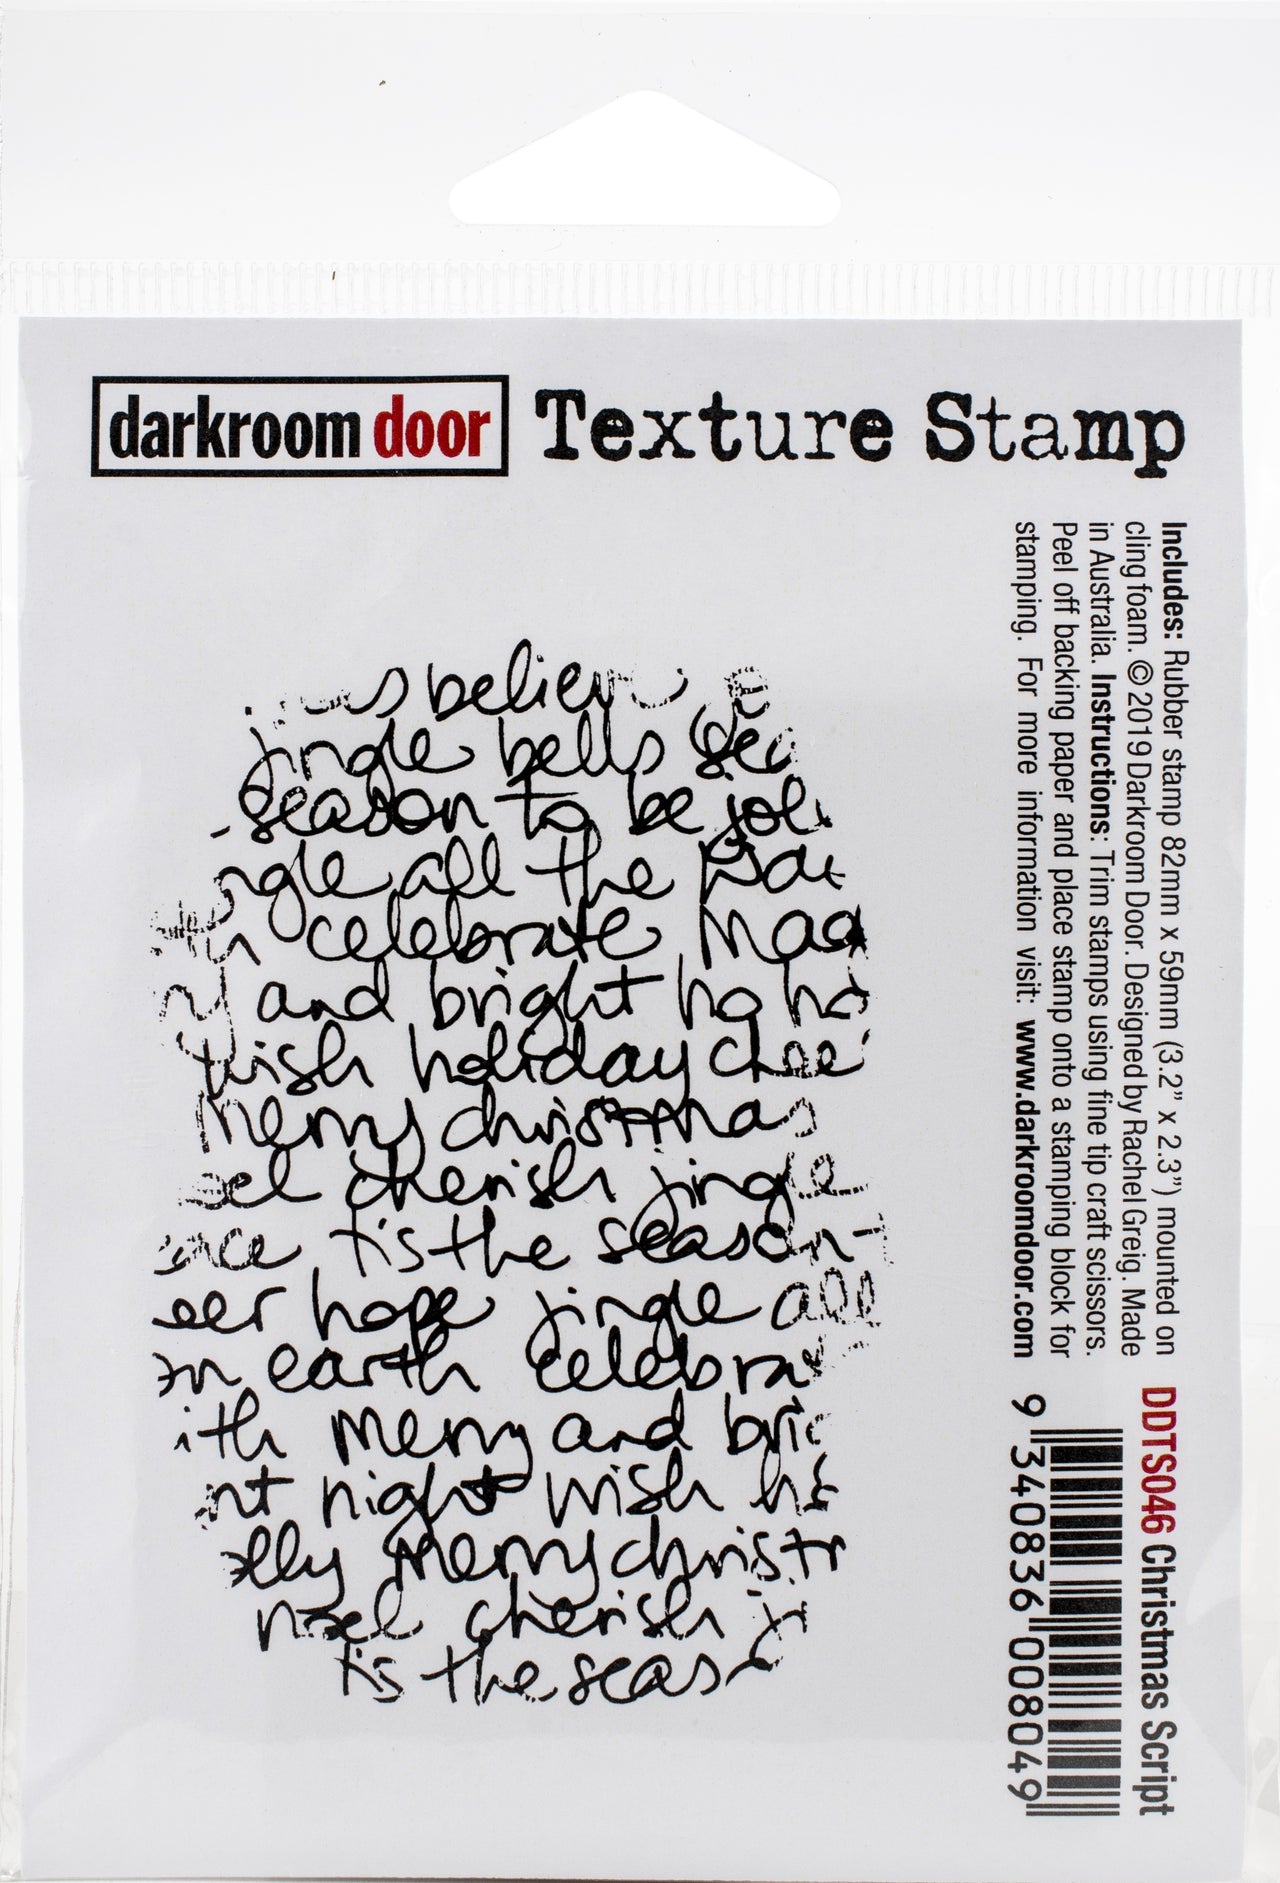 darkroom door Texture Stamp
believ
jingle bells
season to be
all the
celebrate
and bright ho ho
wish holiday
merry christmas
cherish jingle
tis the season
hope jingle all
earth
merry and
night wish
merry
noel cherish
tis the
Includes: Rubber stamp 82mm x 59mm (3.2” x 2.3”) mounted on
cling foam. ©2019 Darkroom Door. Designed by Rachel Greig. Made
in Australia. Instructions: Trim stamps using fine tip craft scissors.
Peel off backing paper and place stamp onto a stamping block for
stamping. For more information visit: www.darkroomdoor.com
DDTS046 Christmas Script
9 340836 008049